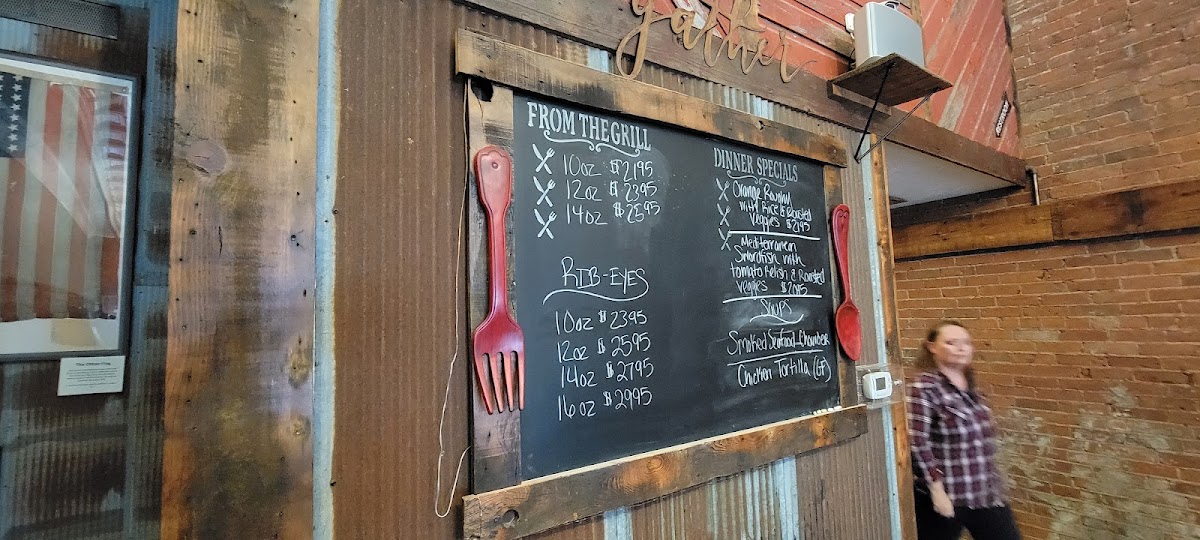 gather
FROM THE GRILL
10oz $2195
12oz $2395
14oz $2595
RIB-EYES
10oz $2395
12oz $2595
14oz $2795
16oz $2995
DINNER SPECIALS
Orange
with Rice & Roasted
Veggies
Mediterranean
Swordfish with
tomato Relish & Roasted
Veggies
Soups
Smoked Seafood Chowder
Chicken Tortilla (GF)